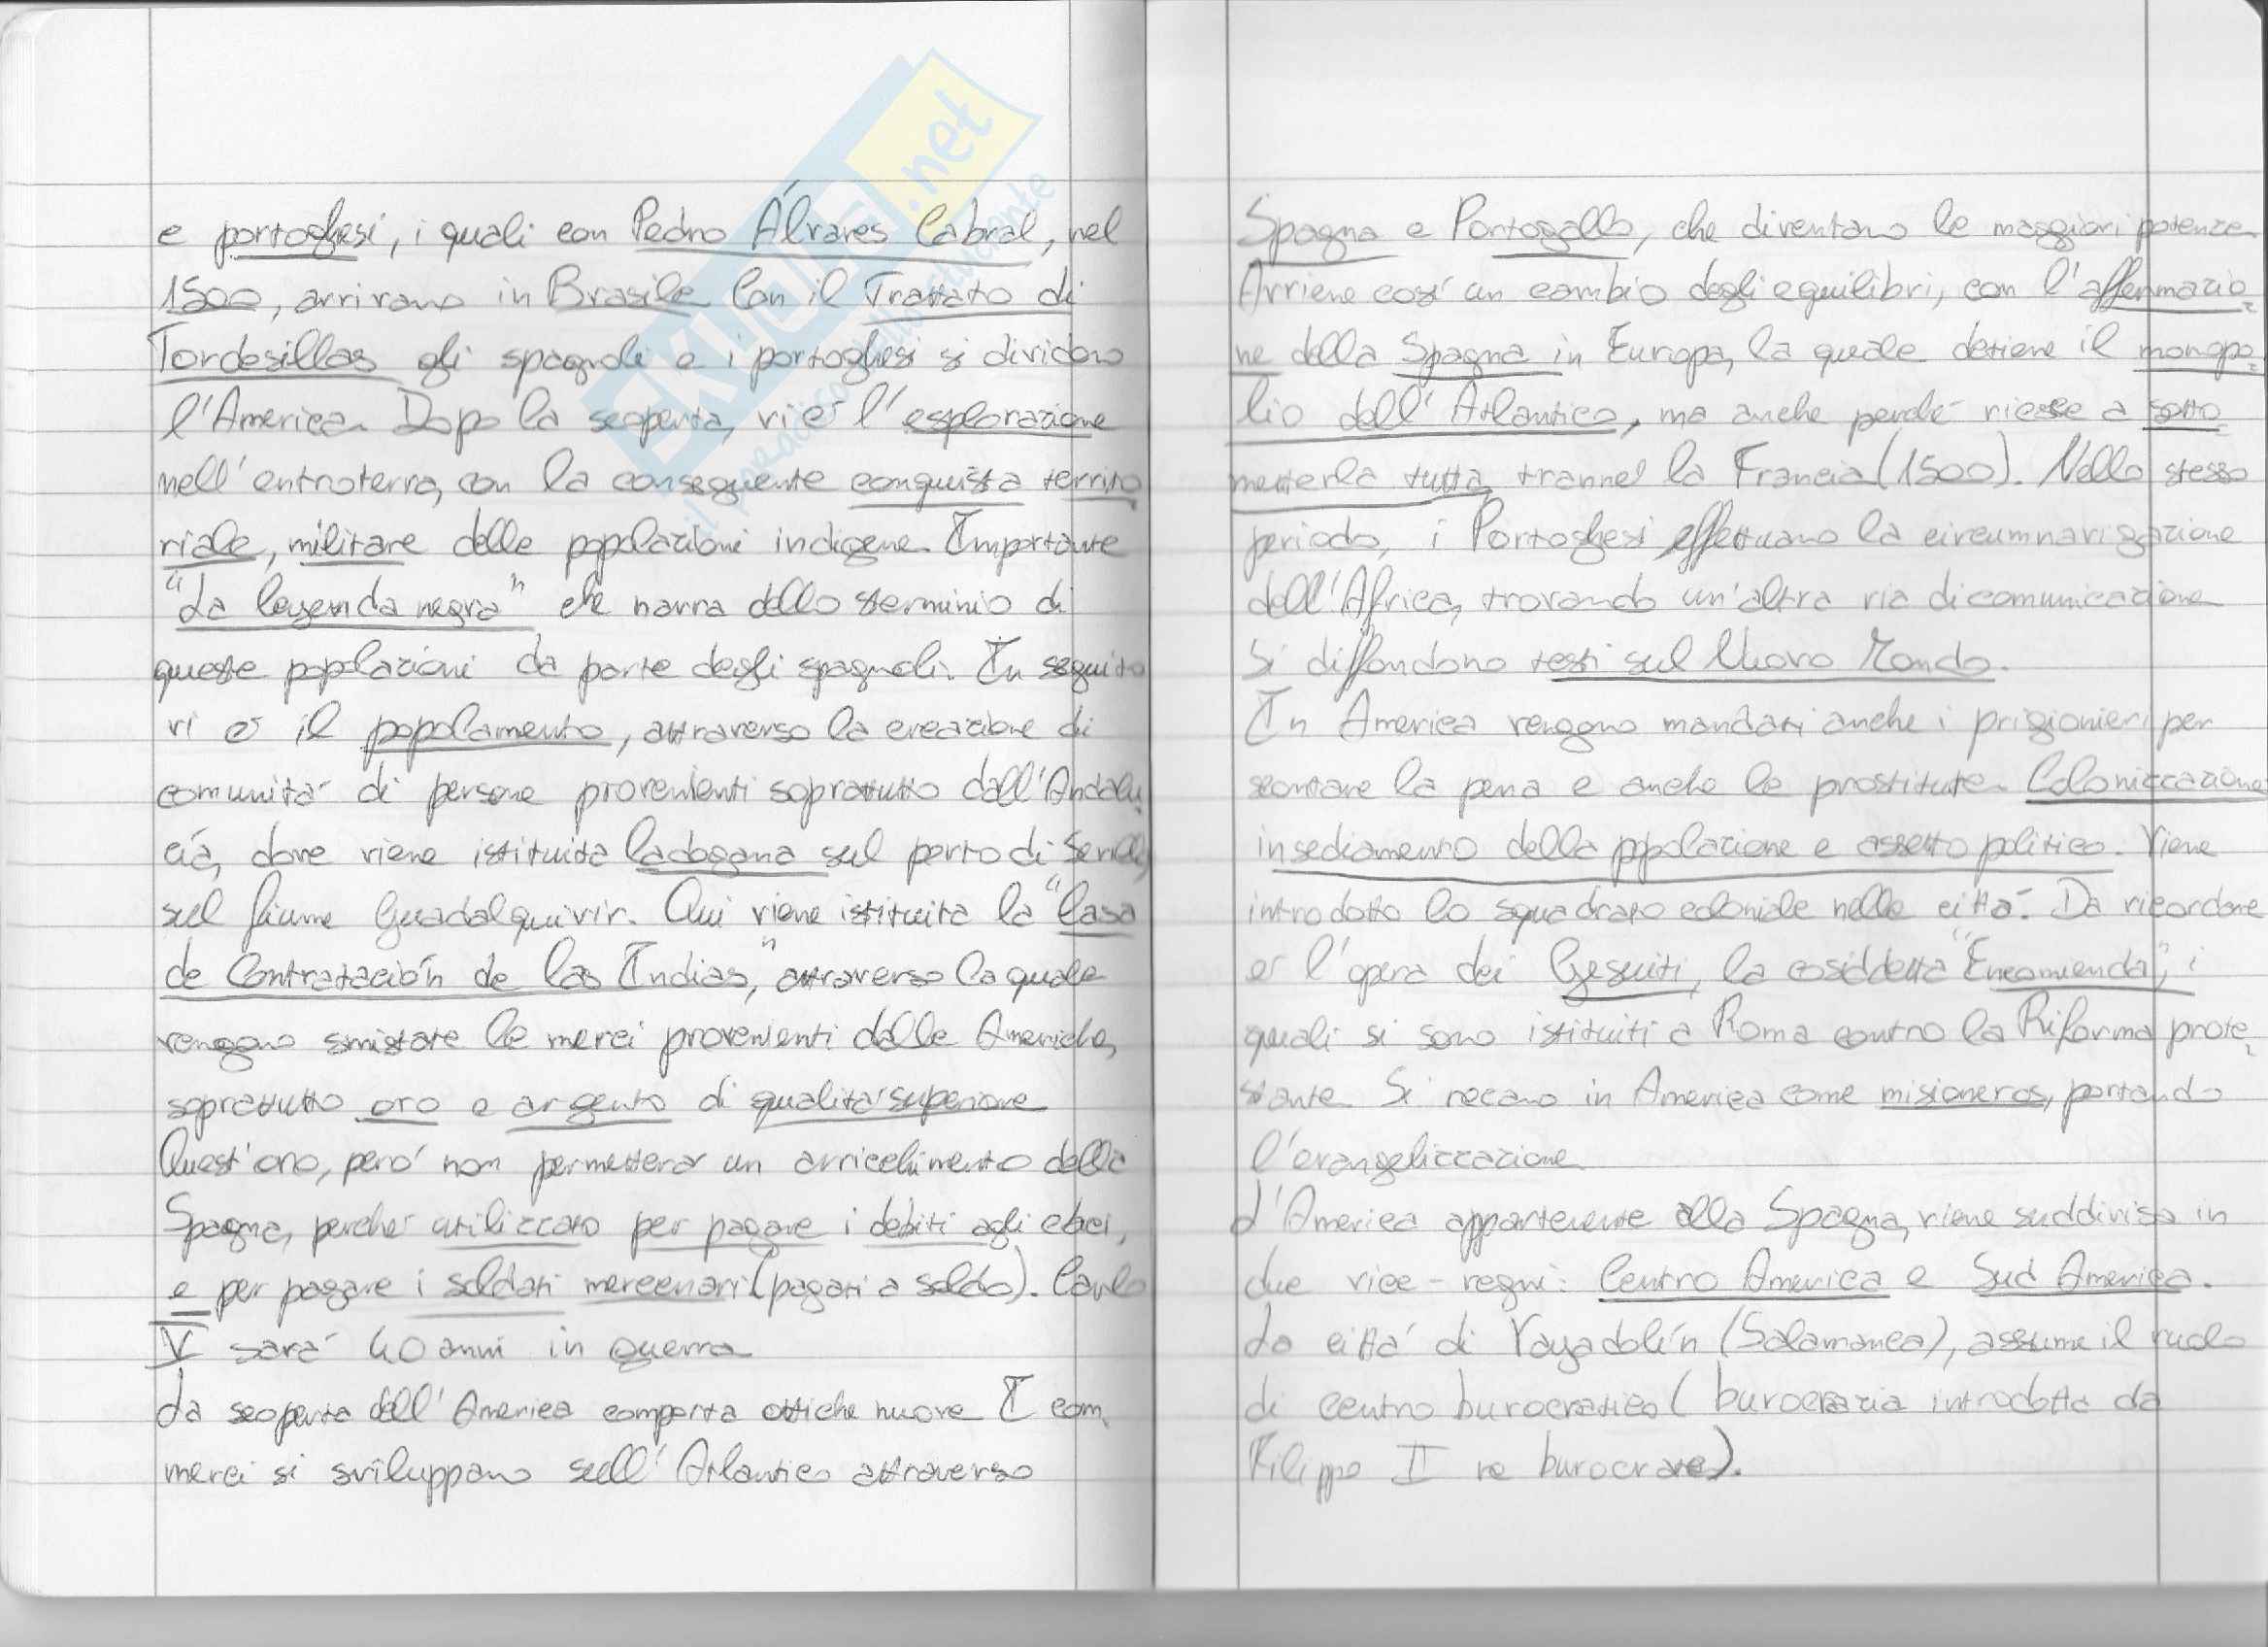 e portoghesi, i quali con Pedro Álvares Cabral, nel
1500, arrivano in Brasile. Con il Trattato di
Tordesillas gli spagnoli e i portoghesi si dividono
l'America. Dopo la scoperta, vi è l'esplorazione
nell'entroterra, con la conseguente conquista territo
riale, militare delle popolazioni indigene. Importante
"La leyenda negra" che narra dello sterminio di
queste popolazioni da parte degli spagnoli. In seguito
vi è il popolamento, attraverso la creazione di
comunità di persone provenienti soprattutto dall'Andalu
cía, dove viene istituita la dogana sul porto di
sul fiume Guadalquivir. Qui viene istituita la "Casa
de Contratación de las Indias," attraverso la quale
vengono smistate le merci provenienti dalle Americhe,
soprattutto oro e argento di qualità superiore.
Quest'oro, però non permetterà un arricchimento della
Spagna, perché utilizzato per pagare i debiti agli ebrei,
e per pagare i soldati mercenari (pagati a soldo). Carlo
V sarà 40 anni in guerra.
La scoperta dell'America comporta ottiche nuove. I com
merci si sviluppano sull'Atlantico attraverso
Spagna e Portogallo, che diventano le maggiori potenze.
Avviene così un cambio degli equilibri, con l'affermazio
ne della Spagna in Europa, la quale detiene il monopo
lio dell'Atlantico, ma anche perché riesce a sotto
metterla tutta, trannè la Francia (1500). Nello stesso
periodo, i Portoghesi effettuano la circumnavigazione
dell'Africa, trovando un'altra via di comunicazione.
Si diffondono testi sul Nuovo Mondo.
In America vengono mandati anche i prigionieri per
scontare la pena e anche le prostitute. Colonizzazione:
insediamento della popolazione e assetto politico. Viene
introdotto lo squadrato coloniale nelle città. Da ricordare
è l'opera dei Gesuiti, la cosiddetta "Encomienda", i
quali si sono istituiti a Roma contro la Riforma prote
stante. Si recano in America come misioneros, portando
l'evangelizzazione.
L'America appartenente alla Spagna, viene suddivisa in
due vice-regni: Centro America e Sud America.
La città di Vayadolín (Salamanca), assume il ruolo
di centro burocratico (burocrazia introdotta da
Filippo II re burocrate).
.net